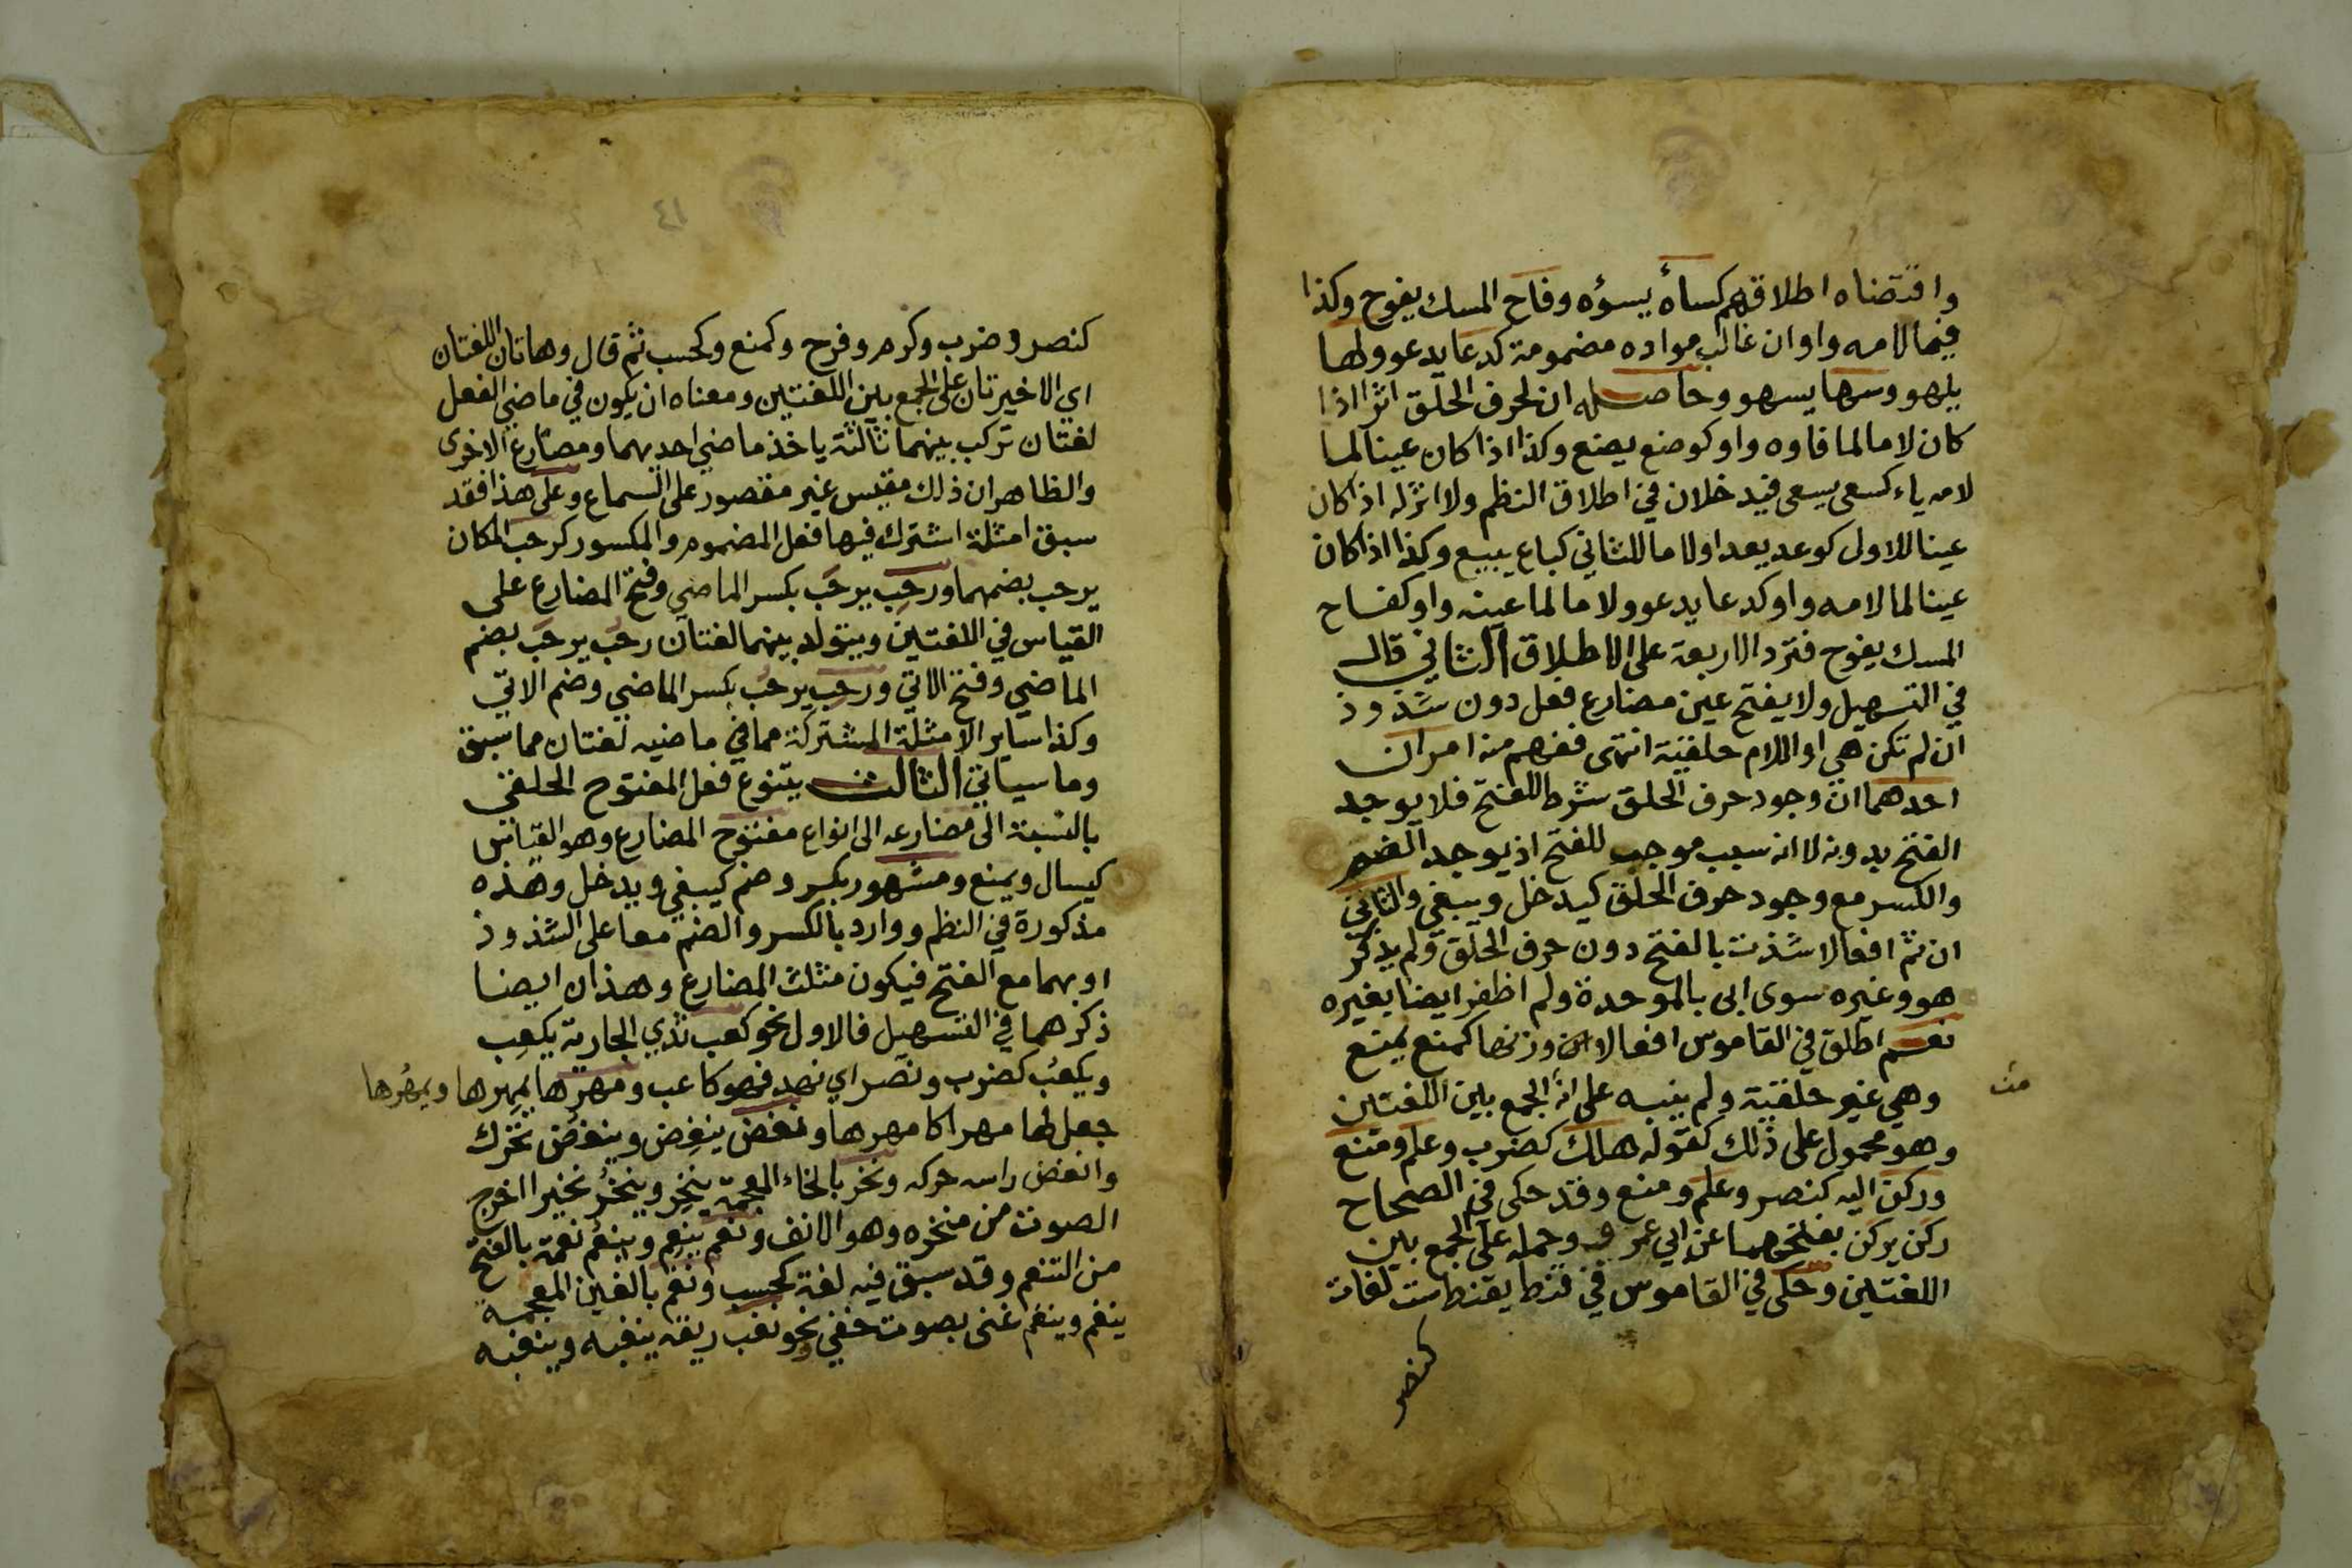 واقتضاه اطلاقهم كساءه يسؤه وفاح المسك يفوح وكذا
فيما لامه واو ان غالب مواده مضمومة كدعا يدعو ولها
يلهو وسها يسهو وحاصله ان لحرف الحلق اثرا اذا
كان لاما لما فاوه واو كوضع يضع وكذا اذا كان عينا لما
لامه ياء كسعى يسعى فيدخلان في اطلاق النظم ولا اثر له اذا كان
عينا للاول كوعد يعد او لاما للثاني كباع يبيع وكذا اذا كان
عينا لما لامه واو كدعا يدعو ولاما لما عينه واو كفاح
المسك يفوح فترد الاربعة على الاطلاق الثاني قال
في التسهيل ولا يفتح عين مضارع فعل دون شذوذ
ان لم تكن هي او اللام حلقية انتهى ففهم منه امران
احدهما ان وجود حرف الحلق شرط للفتح فلا يوجد
الفتح بدونه لا انه سبب موجب للفتح اذ يوجد الضم
والكسر مع وجود حرف الحلق كيدخل ويبغي والثاني
ان ثم افعالا شذت بالفتح دون حرف الحلق ولم يذكر
هو وغيره سوى ابى بالموحدة ولم اظفر ايضا بغيره
نعم اطلق في القاموس افعالا وزنها كمنع يمنع
وهي غير حلقية ولم ينبه على انه الجمع بين اللغتين
وهو محمول على ذلك كقوله هلك كضرب وعلم ومنع
وركن اليه كنصر وعلم ومنع وقد حكى في الصحاح
ركن يركن بفتحهما عن ابي عمرو وحمله على الجمع بين
اللغتين وحكى في القاموس في قنط يقنط ست لغات
كنصر
كنصر وضرب وكرم وفرح وكمنع وكحسب ثم قال وهاتان اللغتان
اي الاخيرتان على الجمع بين اللغتين ومعناه ان يكون في ماضي الفعل
لغتان تركب بينهما ثالثة ياخذ ماضي احديهما ومضارع الاخرى
والظاهر ان ذلك مقيس غير مقصور على السماع وعلى هذا فقد
سبق امثلة اشترك فيها فعل المضموم والمكسور كرحب المكان
يرحب بضمهما ورحِب يرحَب بكسر الماضي وفتح المضارع على
القياس في اللغتين ويتولد بينهما لغتان رحُب يرحَب بضم
الماضي وفتح الاتي ورحِب يرحُب بكسر الماضي وضم الاتي
وكذا ساير الامثلة المشتركة مما في ماضيه لغتان مما سبق
وما سياتي الثالث يتنوع فعل المفتوح الحلقي
بالنسبة الى مضارعه الى انواع مفتوح المضارع وهو القياس
كيسال ويمنع ومشهور بكسر وضم كيبغي ويدخل وهذه
مذكورة في النظم ووارد بالكسر والضم معا على الشذوذ
او بهما مع الفتح فيكون مثلث المضارع وهذان ايضا
ذكرهما في التسهيل فالاول نحو كعب ثدي الجارية يكعِب
ويكعُب كضرب ونصر اي نهد فهو كاعب ومهرها يمهِرها ويمهُرها
جعل لها مهرا كامهرها ونغض ينغِض وينغُض تحرك
وانغض راسه حركه ونخر بالخاء المعجمة ينخِر وينخُر نخيرا اخرج
الصوت من منخره وهو الانف ونعم ينعِم وينعُم نعمة بالفتح
من التنعم وقد سبق فيه لغة كحسب ونغم بالغين المعجمة
ينغم وينغم غنى بصوت خفي نحو نغب ريقه ينغبه وينغبه